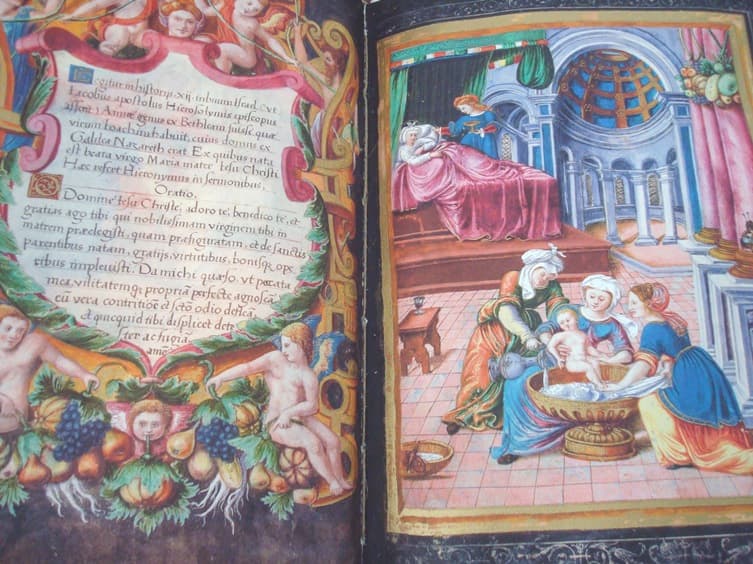 Legitur in historijs xij. tribuum Israel, vt
Iacobus apostolus Hierosolymis episcopus
asserit) Annæ genus ex Bethleem fuisse, quæ
virum Ioachim habuit, cuius domus ex
Galilea Nazareth erat. Ex quibus nata
est beata virgo Maria mater Iesu Christi.
Hæc refert Hieronymus in sermonibus.
Oratio.
Domine Iesu Christe, adoro te, benedico te, et
gratias ago tibi qui nobilissimam virginem tibi in
matrem prælegisti, quam præfiguratam, et de sanctis
parentibus natam, gratijs, virtutibus, bonisq; ope
ribus impleuisti. Da michi quæso, vt peccata
mea, vilitatemq; propriã perfecte agnoscã
cũ vera contritiõe et scto odio defleã,
et quicquid tibi displicet dete
ster ac fugiã
amẽ